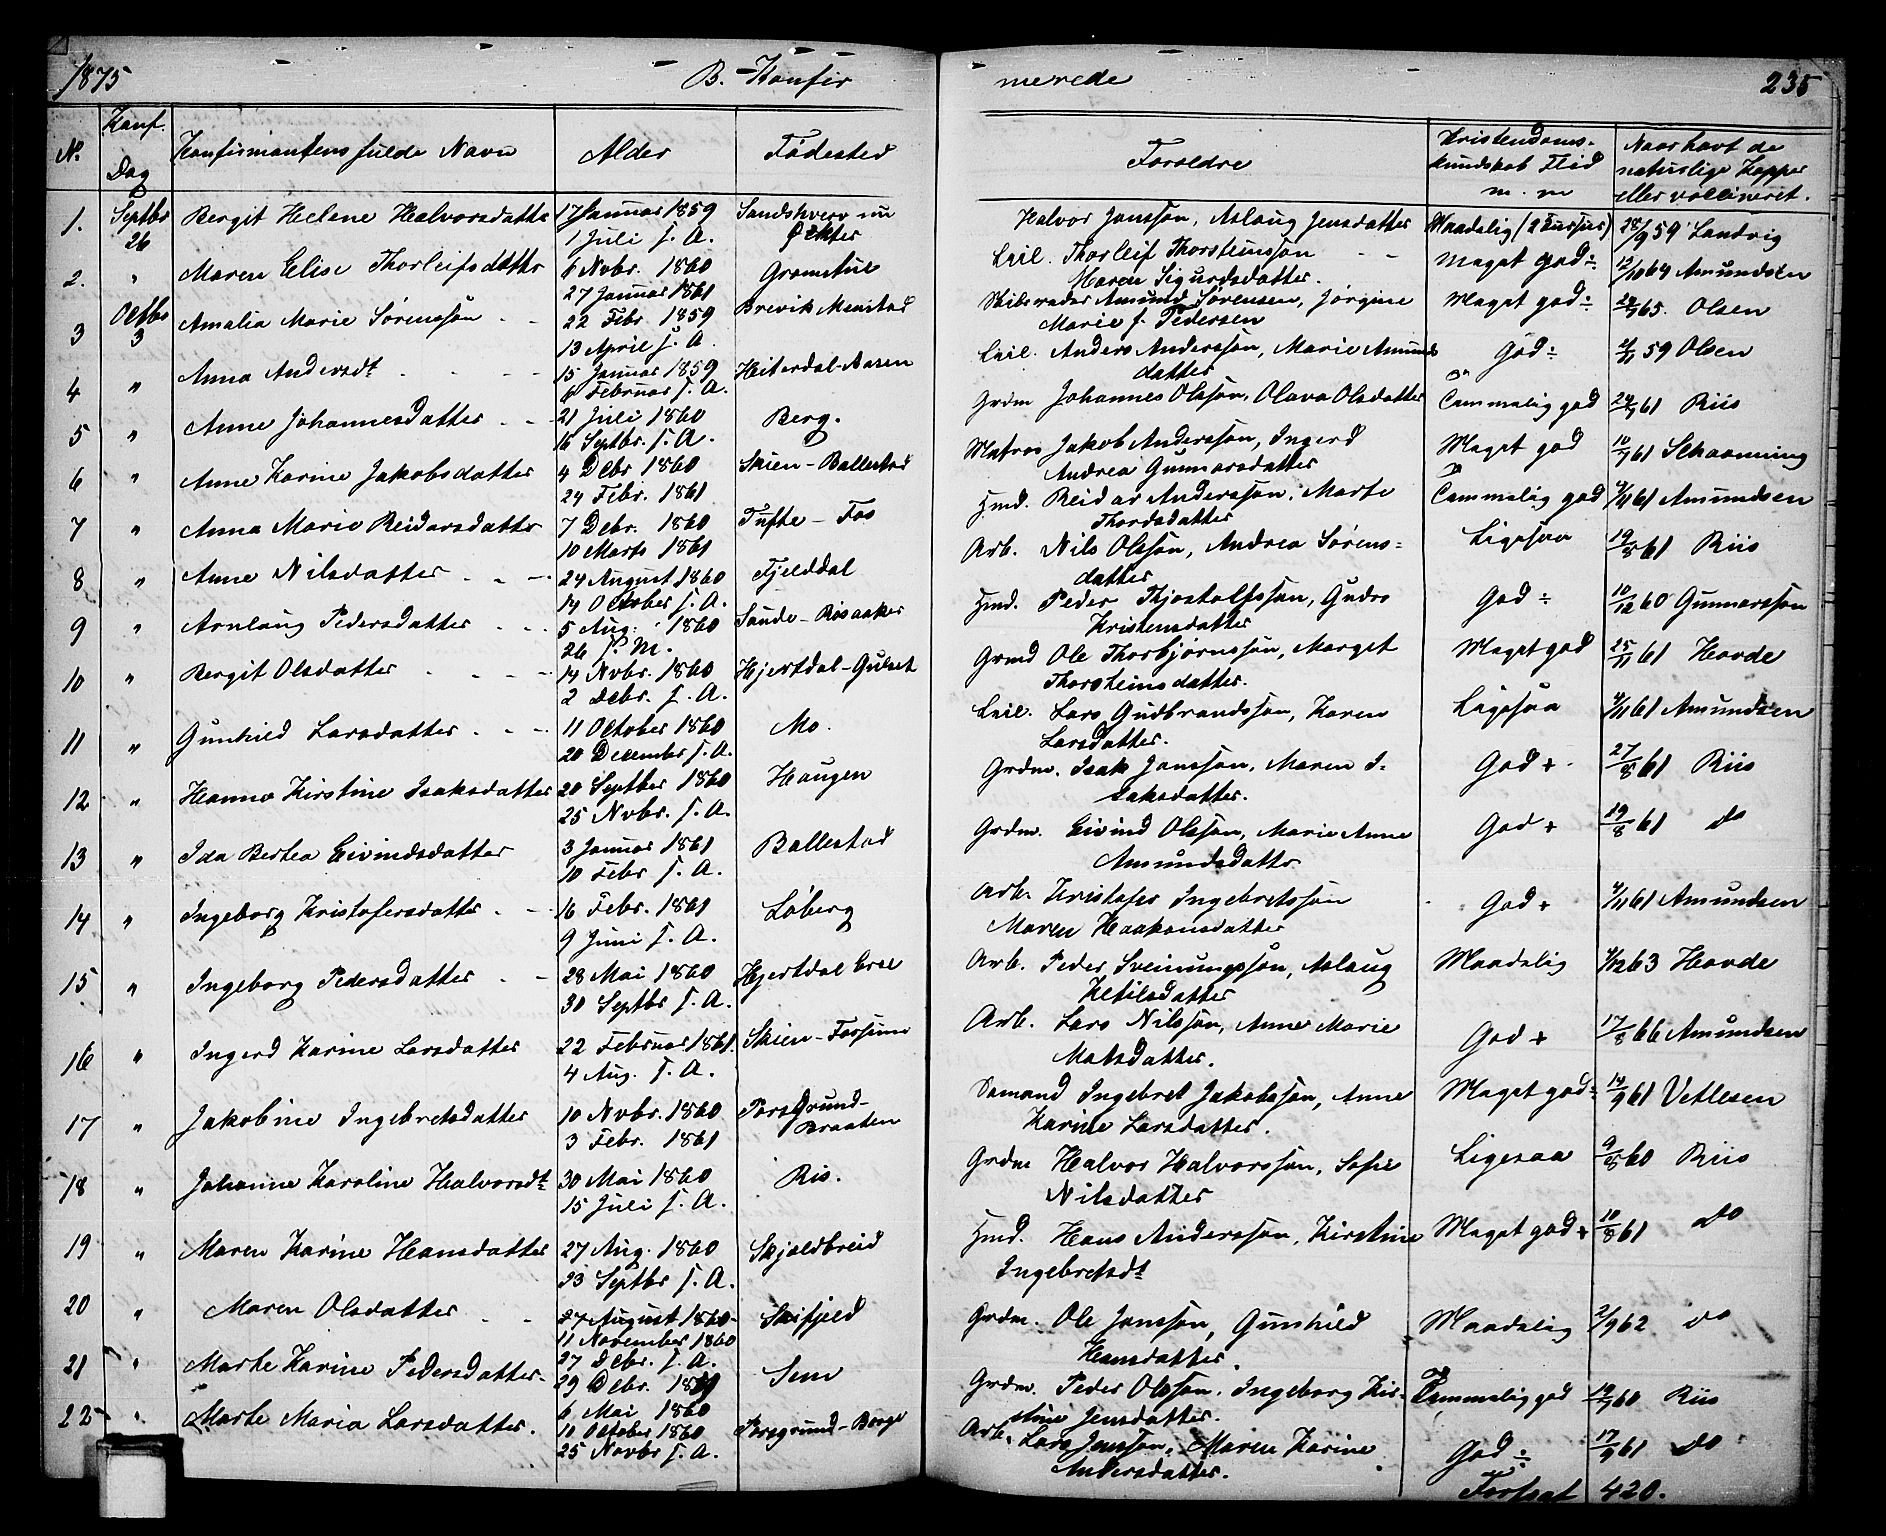 1875 B. Konfirmerede 235
No. Konf. Dag Konfirmantens fulde Navn Alder Fødested Forældre Kristendoms- kundskab Flid m. m Naar havt de naturlige Kopper eller vaccineret.
1. Septbr 26 Bergit Helene Halvorsdatter 17 Januar 1859 Sandshverv nu
1 Juli s. A.
Halvor Jansson, Aslaug Jensdatter Maadelig (2 Kursus) 28/9 59 Landvig
2. " Maren Elise Thorleifsdatter 6 Novbr. 1860
27 Januar 1861
Leil. Thorleif Thorsteinsson Maren Sigurdsdatter. Meget god ÷ 12/10 64 Amundsen
3 Octbr 3 Amalia Marie Sørenssøn 22 Febr. 1859 Brevik Menstad
13 April s. A.
Skibsreder Amund Sørensen, Jørgine Marie f. Pedersen Meget god ÷ 65. Olsen
4 " Anna Andersdt. 15 Januar 1859 Hiterdal-Aasen
6 Februar s. A.
Leil. Anders Anderssøn, Marie Amunds datter God ÷ 59 Olsen
5 " Anne Johannesdatter 21 Juli 1860 Berg.
16 Septbr. s. A.
Grdm Johannes Olssøn, Olava Olsdatter Temmelig god 61 Riis
6 " Anne Karine Jakobsdatter 4 Debr 1860 Skien-Ballestad
24 Febr. 1861
Matros Jakob Anderssøn, Ingerd Andrea Gunnarsdatter Meget god 61 Schaanning
7 " Anna Marie Reidarsdatter 7 Debr. 1860 Tufte - Fos
10 Marts 1861
Hmd. Reidar Anderssøn, Marte Thordsdatter Temmelig god 4/11 61 Amundsen
8 " Anne Nilsdatter 24 August 1860 Fjelddal
14 October s. A.
Arb. Nils Olssøn, Andrea Sørens- datter Ligesaa 19/8 61 Riis
9 " Arnlaug Pedersdatter 5 Aug. 1860 Sande - Røsaaker
26 s. M.
Hmd. Peder Thjostolfssøn, Gudro Kristensdatter God ÷ 10/12 60 Gunnarssøn
10 " Bergit Olsdatter 14 Novbr. 1860 Hjertdal-Gulset
2 Debr. s. A.
Grmd Ole Thorbjørnssøn, Marget Thorsteinsdatter. Meget god 25/11 61 Hovde
11 " Gunhild Larsdatter 11 October 1860 Mo.
20 December s. A.
Leil. Lars Gudbrandssøn, Karen Larsdatter. Ligesaa 4/11 61 Amundsen
12 " Hanna Kirstine Isaksdatter 20 Septber 1860 Haugen
25 Novbr. s. A.
Grdm. Isak Janssøn, Maren I- saksdatter. God + 27/8 61 Riis
13 " Ida Bertea Eivindsdatter 3 Januar 1861 Ballestad
10 Febr s. A.
Grdm. Eivind Olssøn, Marie Anne Amundsdatter God + 19/8 61 do
14 " Ingeborg Kristofersdatter 16 Febr. 1861 Løberg
9 Juni s. A.
Arb. Kristofer Ingebretssøn Maren Haakonsdatter God + 4/11 61 Amundsen
15 " Ingeborg Pedersdatter 28 Mai 1860 Hjertdal
30 Septbr s. A.
Arb. Peder Sveinungssøn, Aslaug Ketilsdatter Maadelig 4/12 63 Hovde
16 " Ingerd Karine Larsdatter 22 Februar 1861. Skien-Fossum
4 Aug. s. A.
Arb. Lars Nilssøn, Anne Marie Matsdatter. God + 17/8 66 Amundsen
17 " Jakobine Ingebretsdatter 10 Novbr. 1860 Porsgrund- Braaten
3 Febr. 1861
Sømand Ingebret Jakobssøn, Anne Karine Larsdatter. Meget god ÷ 14/9 61 Vetlesen
18 " Johanne Karoline Halvorsdt. 30 Mai 1860 Ris.
15 Juli s. A.
Grdm Halvor Halvorssøn, Sofie Nilsdatter Ligesaa 9/8 60 Riis
19 " Maren Karine Hansdatter 27 Aug. 1860 Skjeldbreid
23 Septbr s. A.
Hmd. Hans Anderssøn, Kirstine Ingebretsdt. Meget god + 10/8 61 do
20 " Maren Olsdatter 27 August 1860 Skifjeld
11 November 1860
Grdm. Ole Janssøn, Gunhild Hansdatter. Maadelig 2/9 62 do
21 " Marte Karine Pedersdatter 27 Debr. s. A. Sem
29 Debr. 1859
6 Mai 1860
Grdm. Peder Olssøn, Ingeborg Kir- stine Jensdatter. Temmelig god 60 Riis
22 " Marte Maria Larsdatter. 10 October 1860 Porsgrund-Borge
25 Novbr s. A.
Arb. Lars Jenssøn, Maren Karine Andersdatter. God ÷ 17/9 61 do
Fortsat 420.